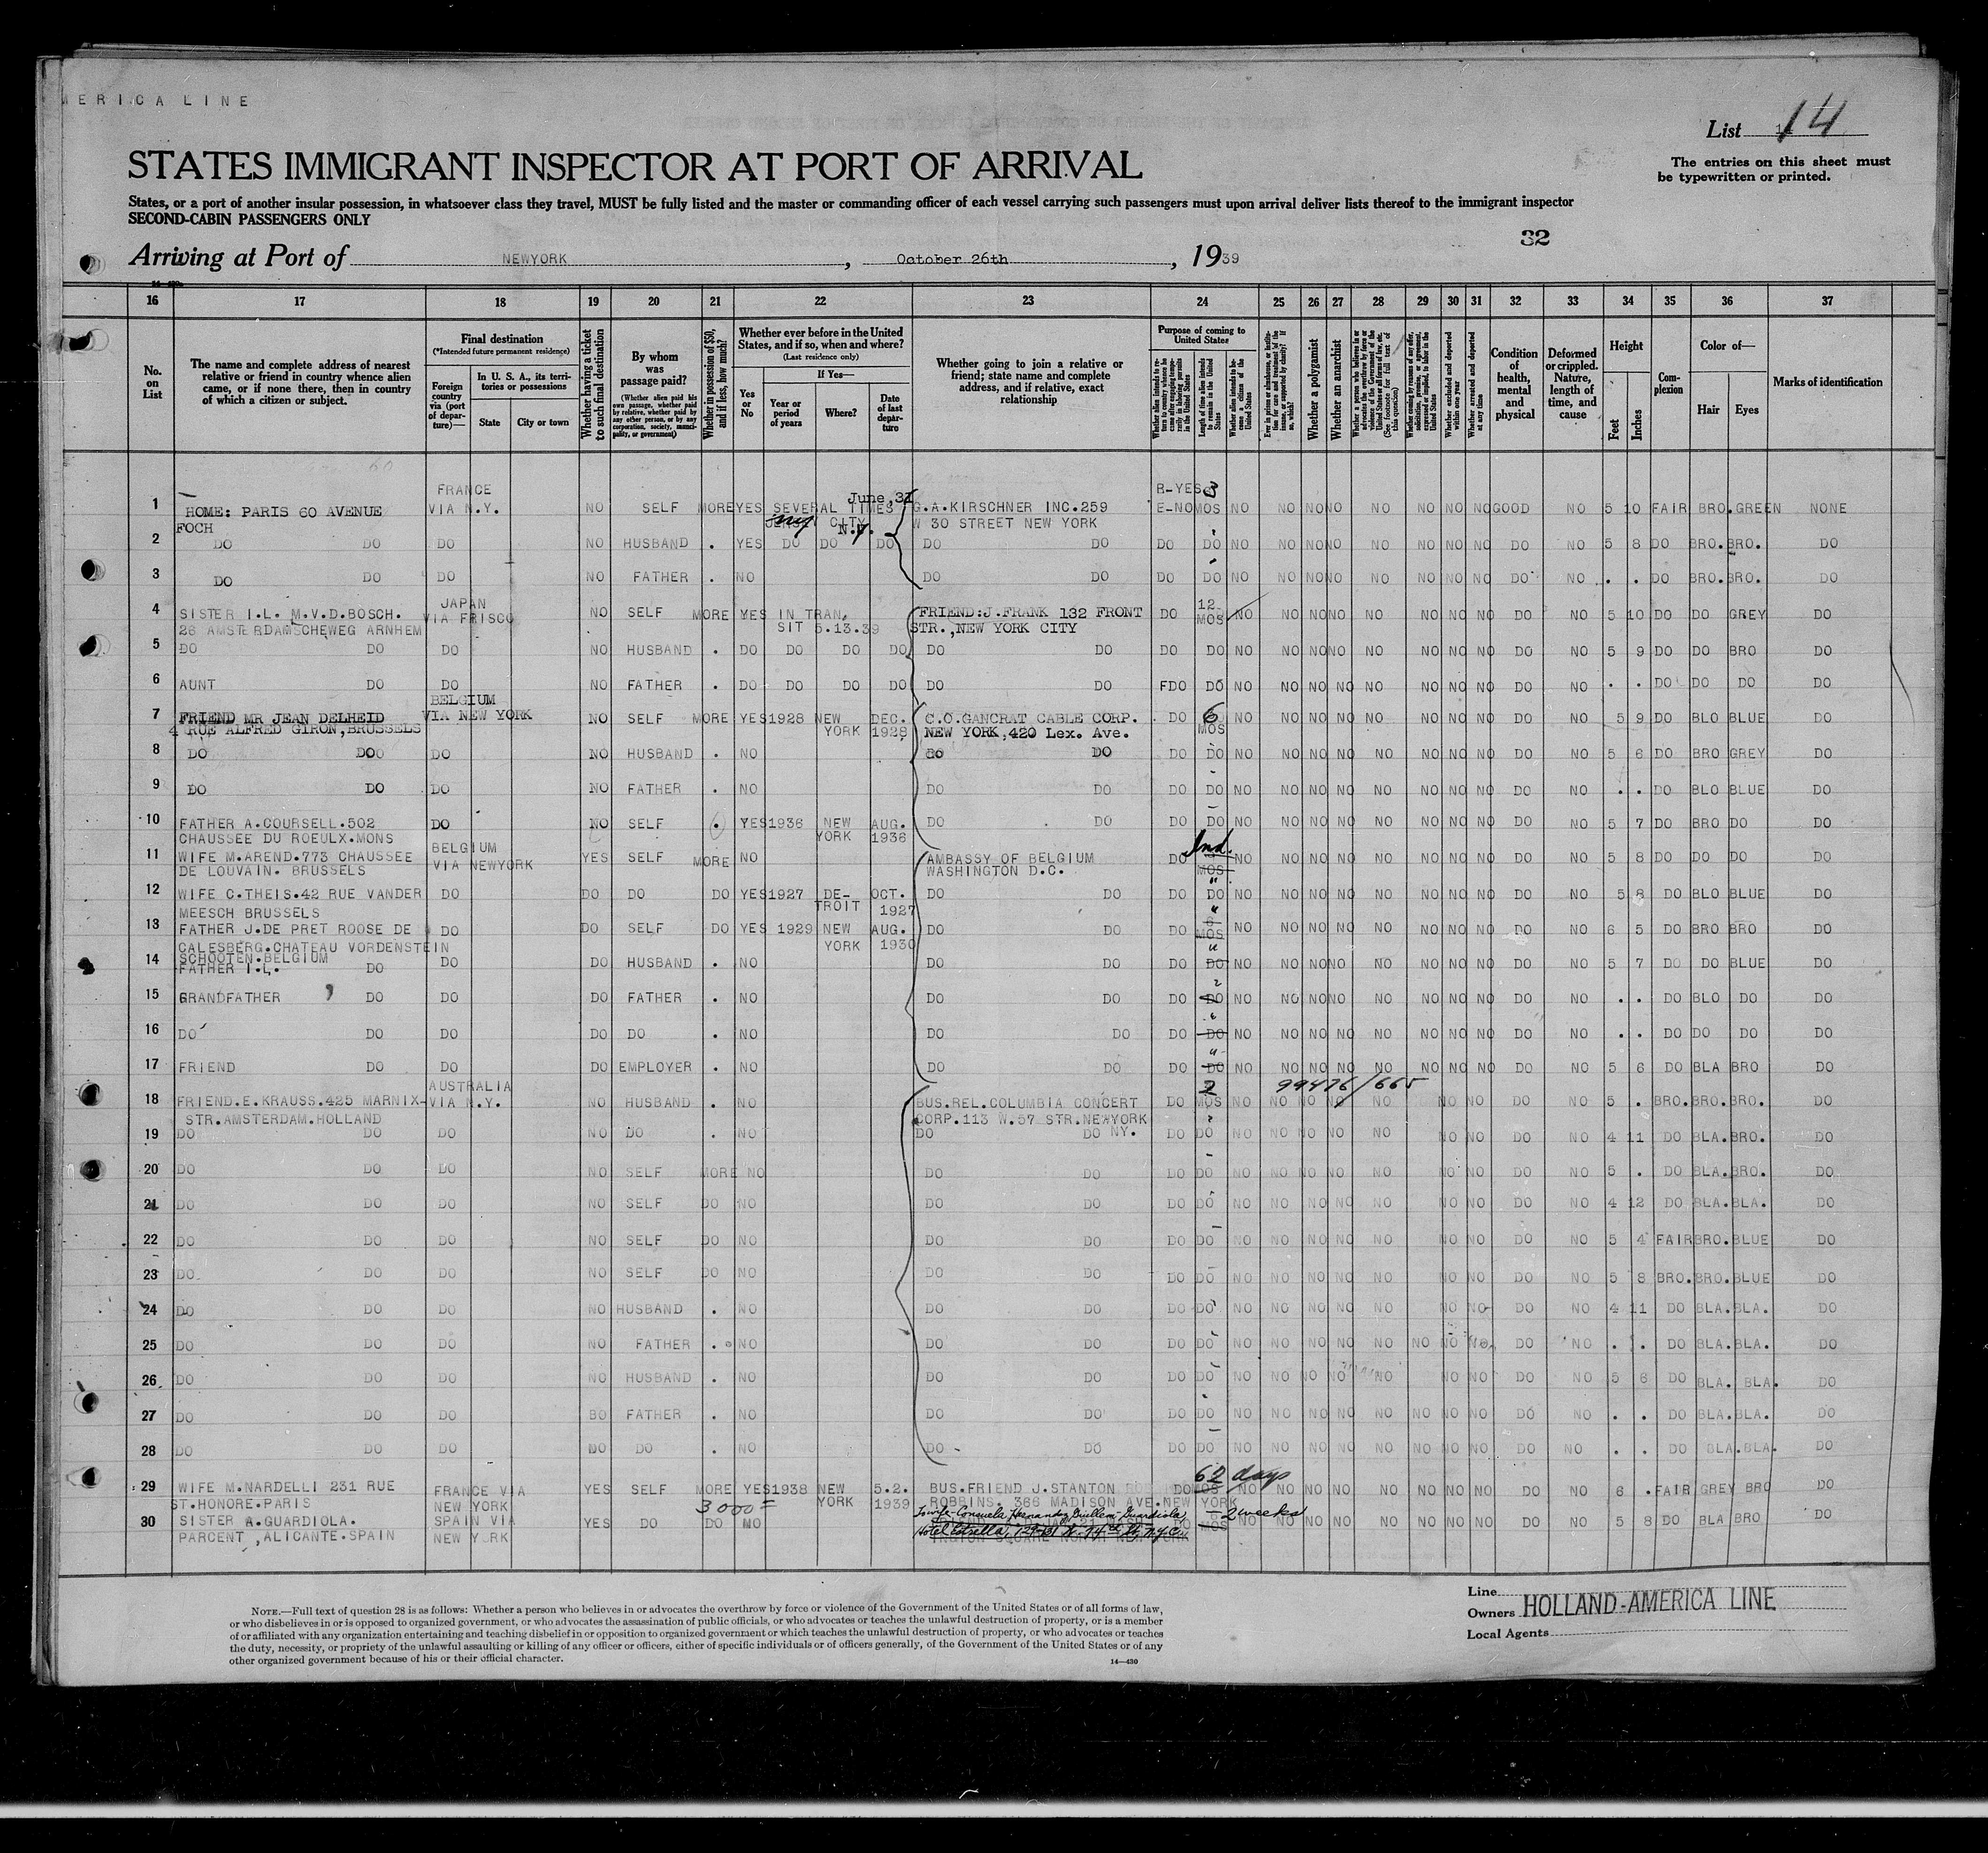 MERICA LINE
List 14
The entries on this sheet must
be typewritten or printed.
STATES IMMIGRANT INSPECTOR AT PORT OF ARRIVAL
States, or a port of another insular possession, in whatsoever class they travel, MUST be fully listed and the master or commanding officer of each vessel carrying such passengers must upon arrival deliver lists thereof to the immigrant inspector
SECOND-CABIN PASSENGERS ONLY
32
Arriving at Port of NEWYORK, October 26th, 1939
16 17 18 19 20 21 22 23 24 25 26 27 28 29 30 31 32 33 34 35 36 37
No. on List
The name and complete address of nearest
relative or friend in country whence alien
came, or if none there, then in country
of which a citizen or subject.
Final destination
(*Intended future permanent residence)
Foreign country via (port of departure)—
In U. S. A., its territories or possessions
State
City or town
Whether having a ticket to such final destination
By whom was passage paid?
(Whether alien paid his own passage, whether paid by relative, whether paid by any other person, or by any corporation, society, municipality, or government)
Whether in possession of $50, and if less, how much?
Whether ever before in the United States, and if so, when and where?
(Last residence only)
Yes or No
If Yes—
Year or period of years
Where?
Date of last departure
Whether going to join a relative or
friend; state name and complete
address, and if relative, exact
relationship
Purpose of coming to United States
Length of time alien intends to remain in the United States
Whether alien intends to become a citizen of the United States
Whether a polygamist
Whether an anarchist
(See footnote for full text of this question)
Whether excluded and deported within one year
Whether arrested and deported at any time
Condition of health, mental and physical
Deformed or crippled. Nature, length of time, and cause
Height
Feet
Inches
Complexion
Color of—
Hair
Eyes
Marks of identification
1 HOME: PARIS 60 AVENUE FOCH FRANCE VIA N.Y. NO SELF MORE YES SEVERAL TIMES June 31 CITY N.Y. G.A.KIRSCHNER INC.259 W 30 STREET NEW YORK R-YES E-NO 3 MOS NO NO NO NO NO NO NO NO GOOD NO 5 10 FAIR BRO. GREEN NONE
2 DO DO DO NO HUSBAND . YES DO DO DO DO DO DO DO NO NO NO NO NO NO NO NO DO NO 5 8 DO BRO. BRO. DO
3 DO DO DO NO FATHER . NO DO DO DO DO NO NO NO NO NO NO NO NO DO NO . . DO BRO. BRO. DO
4 SISTER I.L. M.V.D.BOSCH. 26 AMSTERDAMSCHEWEG ARNHEM JAPAN VIA FRISCO NO SELF MORE YES IN TRANSIT 5.13.39 FRIEND:J.FRANK 132 FRONT STR.,NEW YORK CITY DO 12 MOS NO NO NO NO NO NO NO NO DO NO 5 10 DO DO GREY DO
5 DO DO DO NO HUSBAND . DO DO DO DO DO DO DO DO NO NO NO NO NO NO NO NO DO NO 5 9 DO DO BRO DO
6 AUNT DO DO NO FATHER . DO DO DO DO DO DO FDO DO NO NO NO NO NO NO NO NO DO NO . . DO DO DO DO
7 FRIEND MR JEAN DELHEID 4 RUE ALFRED GIRON,BRUSSELS BELGIUM VIA NEW YORK NO SELF MORE YES 1928 NEW YORK DEC. 1928 C.C.GANCRAT CABLE CORP. NEW YORK,420 Lex. Ave. DO 6 MOS NO NO NO NO NO NO NO NO DO NO 5 9 DO BLO BLUE DO
8 DO DO DO NO HUSBAND . NO DO DO DO DO NO NO NO NO NO NO NO NO DO NO 5 6 DO BRO GREY DO
9 DO DO DO NO FATHER . NO DO DO DO DO NO NO NO NO NO NO NO NO DO NO . . DO BLO BLUE DO
10 FATHER A.COURSELL.502 CHAUSSEE DU ROEULX.MONS DO NO SELF . YES 1936 NEW YORK AUG. 1936 DO DO DO DO NO NO NO NO NO NO NO NO DO NO 5 7 DO BRO DO DO
11 WIFE M.AREND.773 CHAUSSEE DE LOUVAIN. BRUSSELS BELGIUM VIA NEWYORK YES SELF MORE NO AMBASSY OF BELGIUM WASHINGTON D.C. DO Ind. MOS NO NO NO NO NO NO NO NO DO NO 5 8 DO DO DO DO
12 WIFE C.THEIS.42 RUE VANDER MEESCH BRUSSELS DO DO DO DO YES 1927 DETROIT OCT. 1927 DO DO DO DO NO NO NO NO NO NO NO NO DO NO 5 8 DO BLO BLUE DO
13 FATHER J.DE PRET ROOSE DE CALESBERG.CHATEAU VORDENSTEIN SCHOOTEN.BELGIUM DO DO SELF DO YES 1929 NEW YORK AUG. 1930 DO DO DO 6 MOS NO NO NO NO NO NO NO NO DO NO 6 5 DO BRO BRO DO
14 FATHER I.L. DO DO DO HUSBAND . NO DO DO DO DO NO NO NO NO NO NO NO NO DO NO 5 7 DO DO BLUE DO
15 GRANDFATHER DO DO DO FATHER . NO DO DO DO DO NO NO NO NO NO NO NO NO DO NO . . DO BLO DO DO
16 DO DO DO DO DO . NO DO DO DO DO NO NO NO NO NO NO NO NO DO NO . . DO DO DO DO
17 FRIEND DO DO DO EMPLOYER . NO DO DO DO DO NO NO NO NO NO NO NO NO DO NO 5 6 DO BLA BRO DO
99476/665
18 FRIEND.E.KRAUSS.425 MARNIX-STR.AMSTERDAM.HOLLAND AUSTRALIA VIA N.Y. NO HUSBAND . NO BUS.REL.COLUMBIA CONCERT CORP.113 W.57 STR.NEWYORK NY. DO 2 MOS NO NO NO NO NO NO NO DO NO 5 . BRO. BRO. BRO. DO
19 DO DO DO NO DO . NO DO DO DO DO NO NO NO NO NO NO NO DO NO 4 11 DO BLA. BRO. DO
20 DO DO DO NO SELF MORE NO DO DO DO DO NO NO NO NO NO NO NO DO NO 5 . DO BLA. BRO. DO
21 DO DO DO NO SELF DO NO DO DO DO DO NO NO NO NO NO NO NO DO NO 4 12 DO BLA. BLA. DO
22 DO DO DO NO SELF DO NO DO DO DO DO NO NO NO NO NO NO NO DO NO 5 4 FAIR BRO. BLUE DO
23 DO DO DO NO SELF DO NO DO DO DO DO NO NO NO NO NO NO NO DO NO 5 8 BRO. BRO. BLUE DO
24 DO DO DO NO HUSBAND . NO DO DO DO DO NO NO NO NO NO NO NO DO NO 4 11 DO BLA. BLA. DO
25 DO DO DO NO FATHER . NO DO DO DO DO NO NO NO NO NO NO NO NO DO NO . . DO BLA. BLA. DO
26 DO DO DO NO HUSBAND . NO DO DO DO DO NO NO NO NO NO NO NO DO NO 5 6 DO BLA. BLA. DO
27 DO DO DO BO FATHER . NO DO DO DO DO NO NO NO NO NO NO NO NO DO NO . . DO BLA. BLA. DO
28 DO DO DO DO DO . NO DO DO DO DO NO NO NO NO NO NO NO NO DO NO . . DO BLA. BLA. DO
29 WIFE M.NARDELLI 231 RUE ST.HONORE.PARIS FRANCE VIA NEW YORK YES SELF MORE 3000= YES 1938 NEW YORK 5.2. 1939 BUS.FRIEND J.STANTON ROBBINS. 366 MADISON AVE.NEW YORK DO 62 days MOS NO NO NO NO NO NO NO NO DO NO 6 . FAIR GREY BRO DO
30 SISTER A.GUARDIOLA. PARCENT ,ALICANTE.SPAIN SPAIN VIA NEW YORK YES DO DO NO To wife-Consuela Hernandez Guillem-Guardiola, Hotel Estrella, W. 14th St, N.Y.C. SQUARE NORTH NEW YORK DO 2 weeks MOS NO NO NO NO NO NO NO NO DO NO 5 8 DO BLA BRO DO
NOTE.—Full text of question 28 is as follows: Whether a person who believes in or advocates the overthrow by force or violence of the Government of the United States or of all forms of law,
or who disbelieves in or is opposed to organized government, or who advocates the assassination of public officials, or who advocates or teaches the unlawful destruction of property, or is a member
of or affiliated with any organization entertaining and teaching disbelief in or opposition to organized government or which teaches the unlawful destruction of property, or who advocates or teaches
the duty, necessity, or propriety of the unlawful assaulting or killing of any officer or officers, either of specific individuals or of officers generally, of the Government of the United States or of any
other organized government because of his or their official character.
14—430
Line
Owners HOLLAND-AMERICA LINE
Local Agents